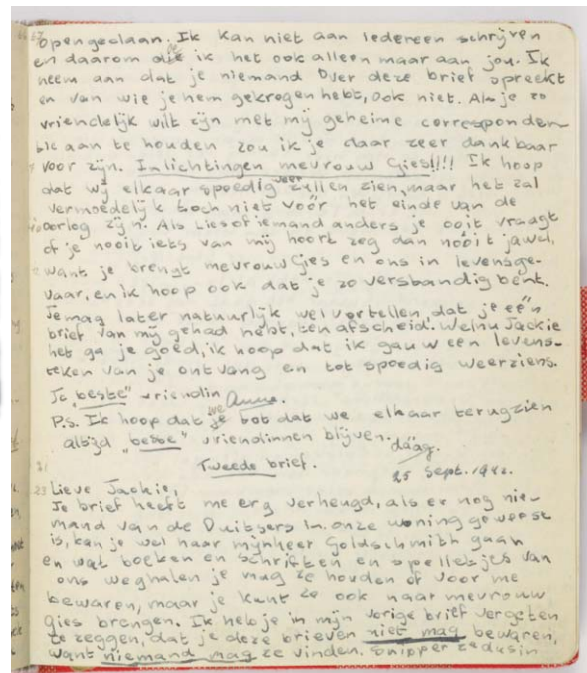 opengedaan. Ik kan niet aan iedereen schrijven
en daarom doe ik het ook alleen maar aan jou. Ik
neem aan dat je niemand over deze brief spreekt
en van wie je hem gekregen hebt, ook niet. Als je zo
vriendelijk wilt zijn met mij geheime corresponden-
tie aan te houden zou ik je daar zeer dankbaar
voor zijn. Inlichtingen mevrouw Gies!!!! Ik hoop
dat wij elkaar spoedig weer zullen zien, maar het zal
vermoedelijk toch niet vóór het einde van de
oorlog zijn. Als Lies of iemand anders je ooit vraagt
of je nooit iets van mij hoort zeg dan nóóit jawel,
want je brengt mevrouw Gies en ons in levensge-
vaar, en ik hoop ook dat je zo verstandig bent.
Je mag later natuurlijk wel vertellen, dat je één
brief van mij gehad hebt, ten afscheid. Welnu Jackie
het ga je goed, ik hoop dat ik gauw een levens-
teken van je ontvang en tot spoedig weerziens.
Je "beste" vriendin Anne.
P.s. Ik hoop dat we tot dat we elkaar terugzien
altijd "beste" vriendinnen blijven.
dáág.
Tweede brief.
25 Sept. 1942.
Lieve Jackie,
Je brief heeft me erg verheugd, als er nog nie-
mand van de Duitsers in onze woning geweest
is, kan je wel naar mijnheer Goldschmith gaan
en wat boeken en schriften en spelletjes van
ons weghalen je mag ze houden of voor me
bewaren, maar je kunt ze ook naar mevrouw
Gies brengen. Ik heb je in mijn vorige brief vergeten
te zeggen, dat je deze brieven niet mag bewaren,
want niemand mag ze vinden. Snipper ze dus in